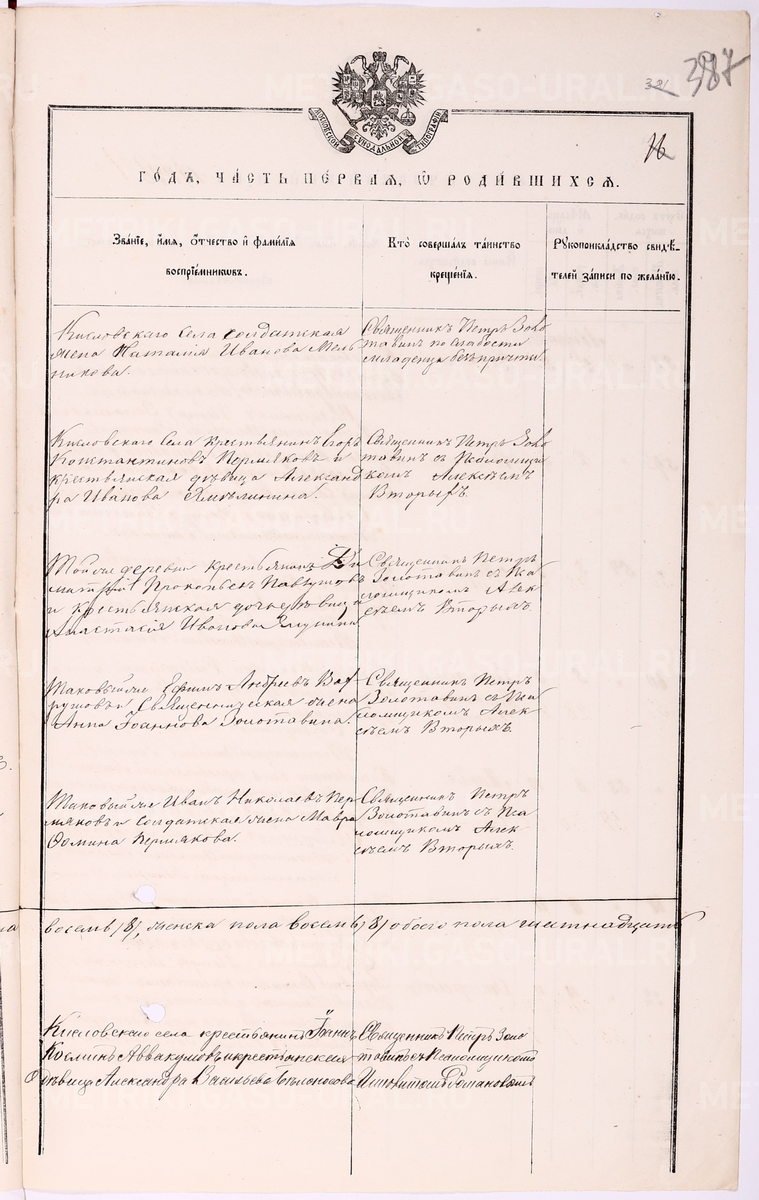 321
387
16
МОСКОВСКОЙ СѴНОДАЛЬНОЙ ТИПОГРАФІИ
ГОДЪ, ЧАСТЬ ПЕРВАЯ, Ѡ РОДИВШИХСЯ.
Званіе, имя, отчество и фамилія
воспріемниковъ.
Кто совершалъ таинство
крещенія.
Рукоприкладство свидѣ-
телей записи по желанію.
Кисловскаго села солдатская
жена Наталія Иванова Мель
никова.
Священникъ Петръ Золо
тавинъ по слабости
младенца безъ причта.
Кисловскаго Села крестьянинъ Егоръ
Константиновъ Пермяковъ и
крестьянская дѣвица Александ
ра Иванова
Священникъ Петръ Золо
тавинъ съ Псаломщи
комъ Алексѣемъ
Вторыхъ.
Той же деревни крестьянинъ Ди
митрій Прокопьевъ
и крестьянская дочь дѣвица
Анастасія Иванова
Священникъ Петръ
Золотавинъ съ Пса
ломщикомъ Алек
сѣемъ Вторымъ
Таковый же Ефимъ Андреевъ Вах
рушовъ и Священническая жена
Анна Іоаннова Золотавина.
Священникъ Петръ
Золотавинъ съ Пса
ломщикомъ Алек
сѣемъ Вторыхъ.
Таковый же Иванъ Николаевъ Пер
мяковъ и Солдатская жена Мавра
Ѳомина Пермякова.
Священникъ Петръ
Золотавинъ съ Пса
ломщикомъ Алек
сѣемъ Вторыхъ.
восемь /8/, женска пола восемь /8/ обоего пола шестнадцать
Кисловскаго села крестьянинъ Іоаннъ
Козминъ Аввакумовъ и крестьянская
дѣвица Александра Васильева Бѣлоносова
Священникъ Петръ Золо
тавинъ съ Псаломщикомъ
Романовымъ
METRIKI.GASO-URAL.RU